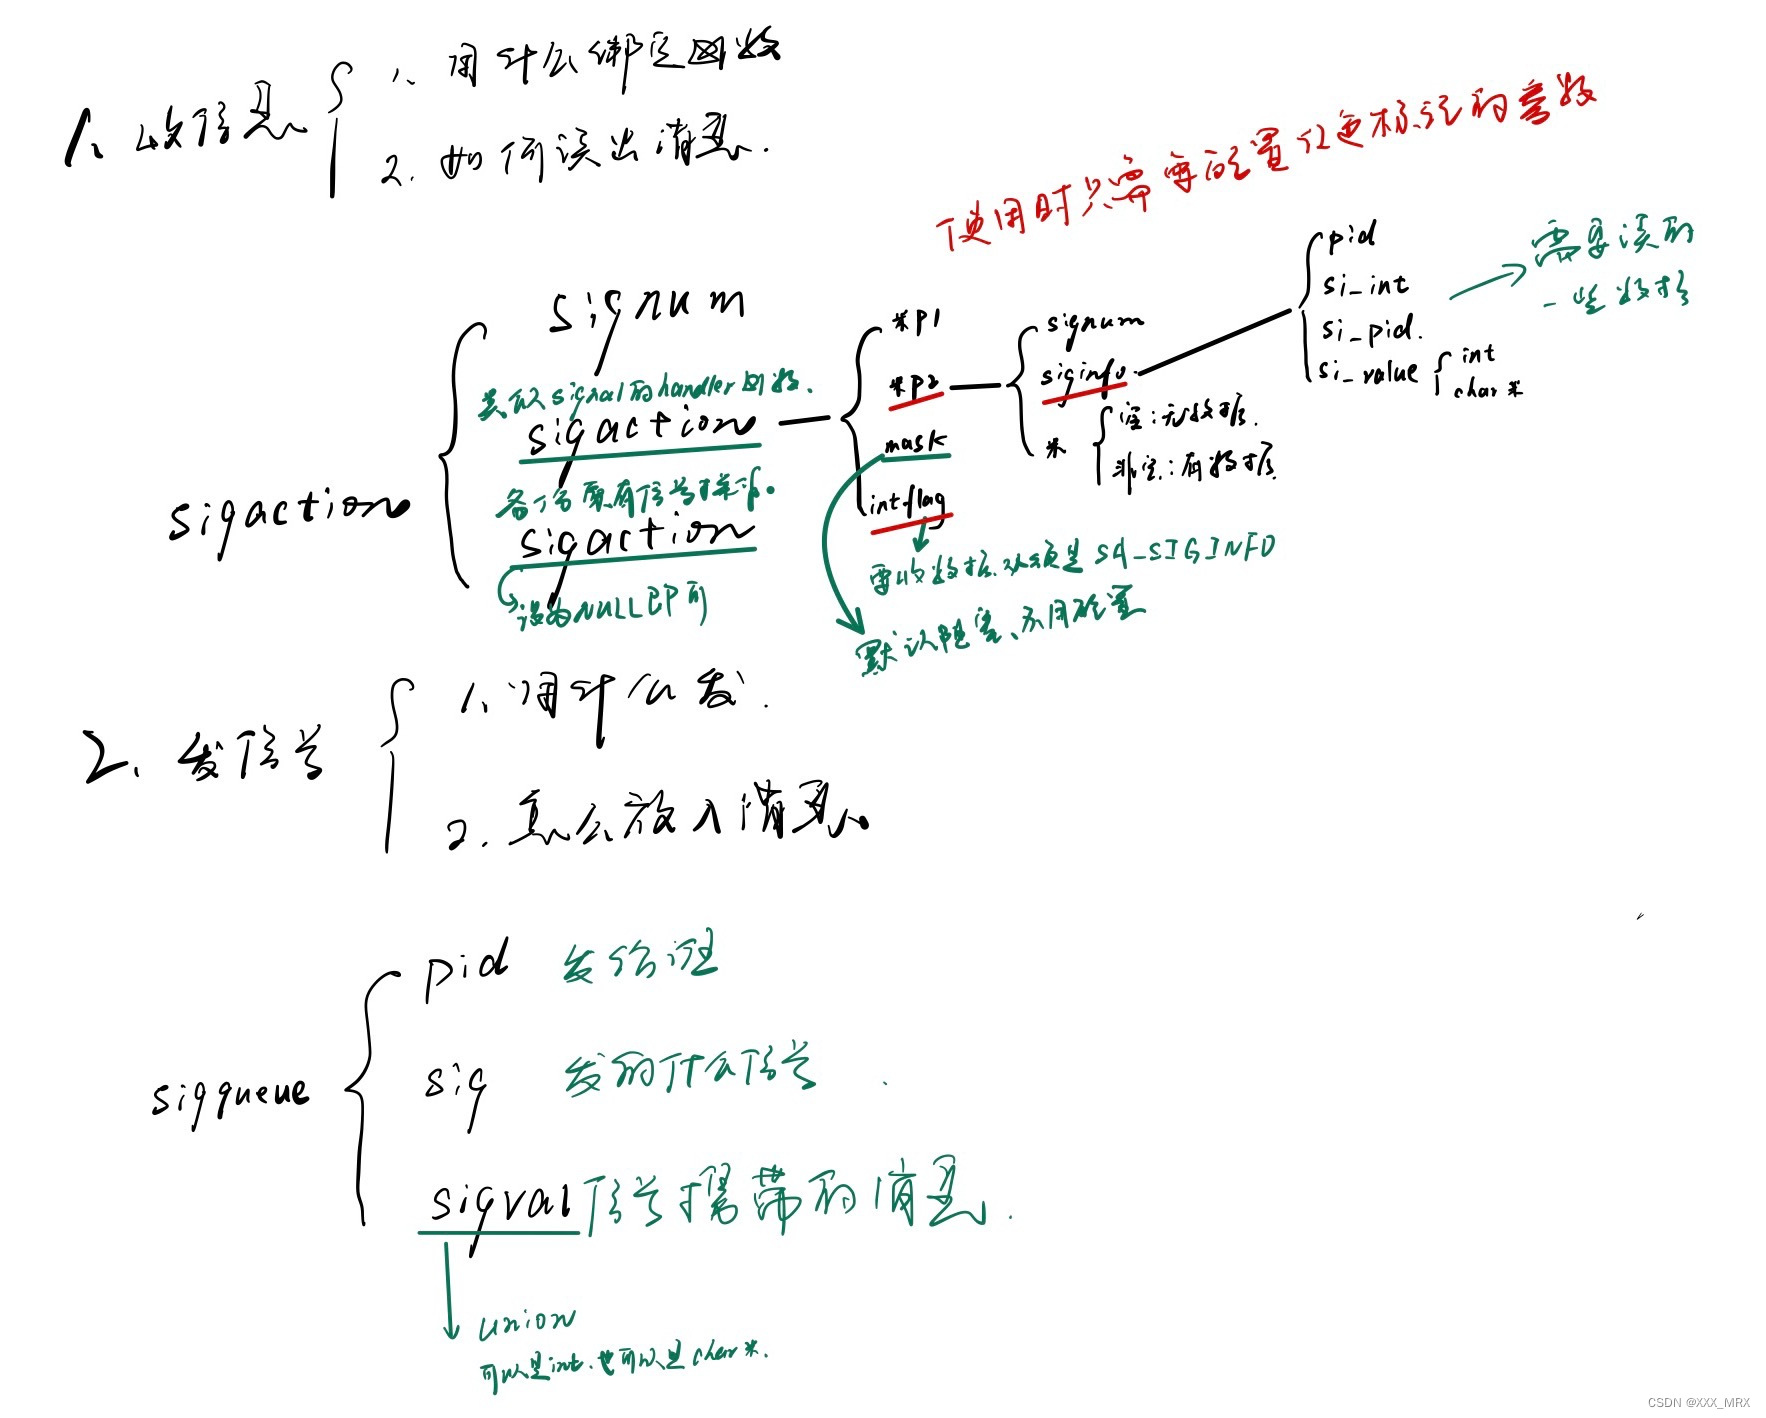 1、收信息
1、用什么绑定函数
2. 如何读出消息.
使用时只需要配置红色标记的参数
sigaction
signum
类似signal的handler函数.
sigaction
备份原有信号操作.
sigaction
设为NULL即可
*p1
*p2
mask
int flag
需收数据.必须是SA_SIGINFO
默认阻塞、不用配置
signum
siginfo.
*
空:无数据.
非空:有数据
pid
si_int
si_pid.
si_value
int
char *
需要读的
一些数据
2、发信号
1、用什么发.
2. 怎么放入消息.
sigqueue
pid 发给谁
sig 发的什么信号.
sigval 信号携带的消息.
union
可以是int.也可以是char *.
CSDN @XXX_MRX